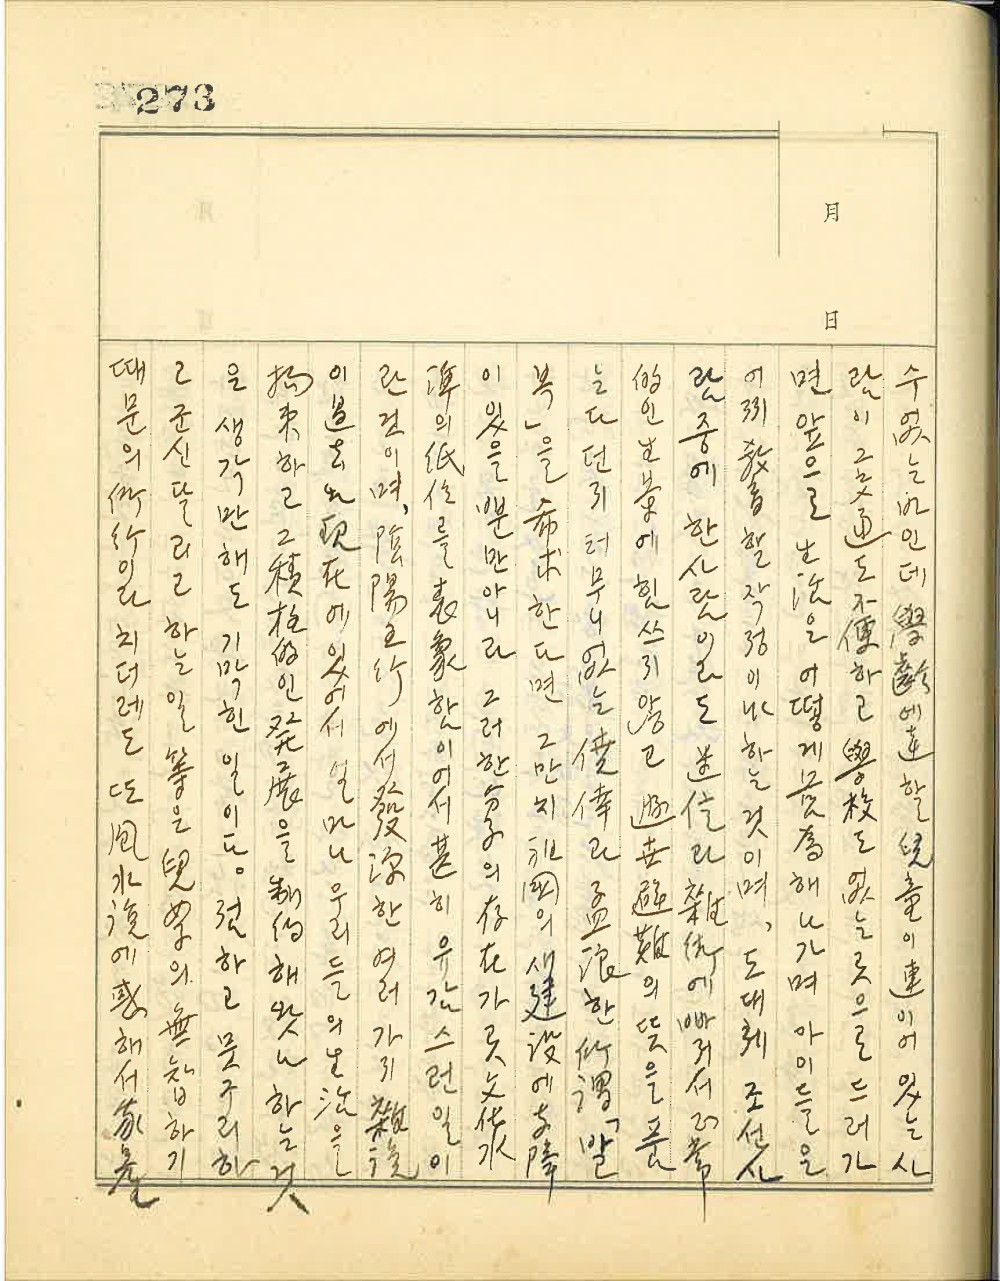 273
月
日
수 없는 것인데 學齡에 達한 兒童이 連이어 있는 사
람이 그 交通도 不便하고 學校도 없는 곳으로 드러가
면 앞으로 生活은 어떻게 營爲해 나가며 아이들은
어찌 敎育할 작정이냐 하는 것이며, 도대체 조선사
람 중에 한 사람이라도 迷信과 雜術에 빠저서 正常
的인 生業에 힘쓰지 않고 遯世避難의 뜻을 품
는다던지 터무니없는 僥倖과 孟浪한 所謂「발
복」을 希求한다면 그만치 祖國의 새 建設에 支障
이 있을 뿐만 아니라 그러한 分子의 存在가 곳 文化水
準의 低位를 表象함이어서 甚히 유감스런 일이
란 것이며, 陰陽五行에서 發源한 여러 가지 雜說
이 過去와 現在에 있어서 얼마나 우리들의 生活을
拘束하고 그 積極的인 發展을 制約해 왔나 하는 것
은 생각만 해도 기막힌 일이다。점하고 뭇구리하
고 군신달리고 하는 일 等은 兒女子의 無智하기
때문의 所行이라 치더래도 또 風水說에 惑해서 家墓